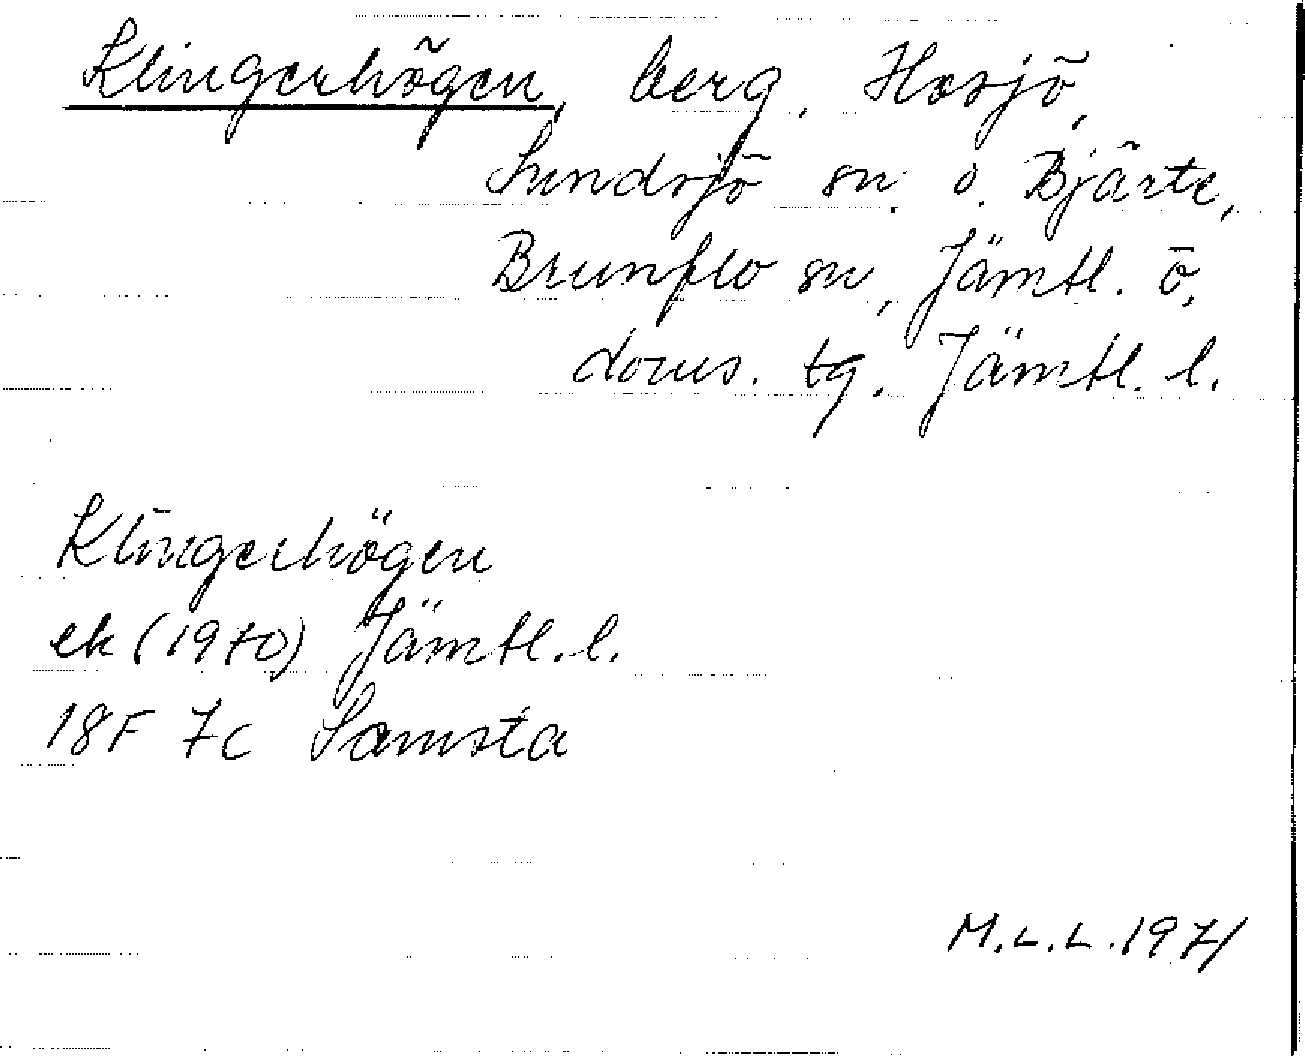 Klingerhögen, berg, Hosjö,
Sundsjö sn. o. Bjärte,
Brunflo sn, Jämtl. ö.
doms. tg. Jämtl. l.
Klingerhögen
ek (1970) Jämtl. l.
18F 7c Samsta
M.L.L. 1971